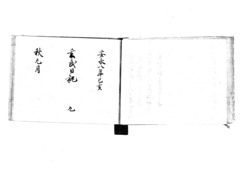 安永八年己亥
日記
九
秋九月